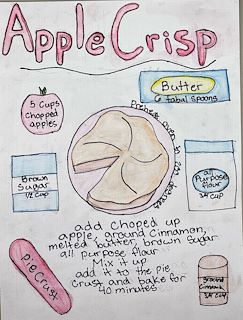 Apple Crisp
5 Cups
Chopped
apples
Butter
6 tabal spoons
Preheat oven to
Brown
Sugar
1/2 Cup
all
Purpose
flour
3/4 Cup
add choped up
apple, ground Cinnamon,
melted butter, brown sugar
all purpose flour
Mix it up
add it to the pie
crust and bake for
40 minutes
pie crust
ground